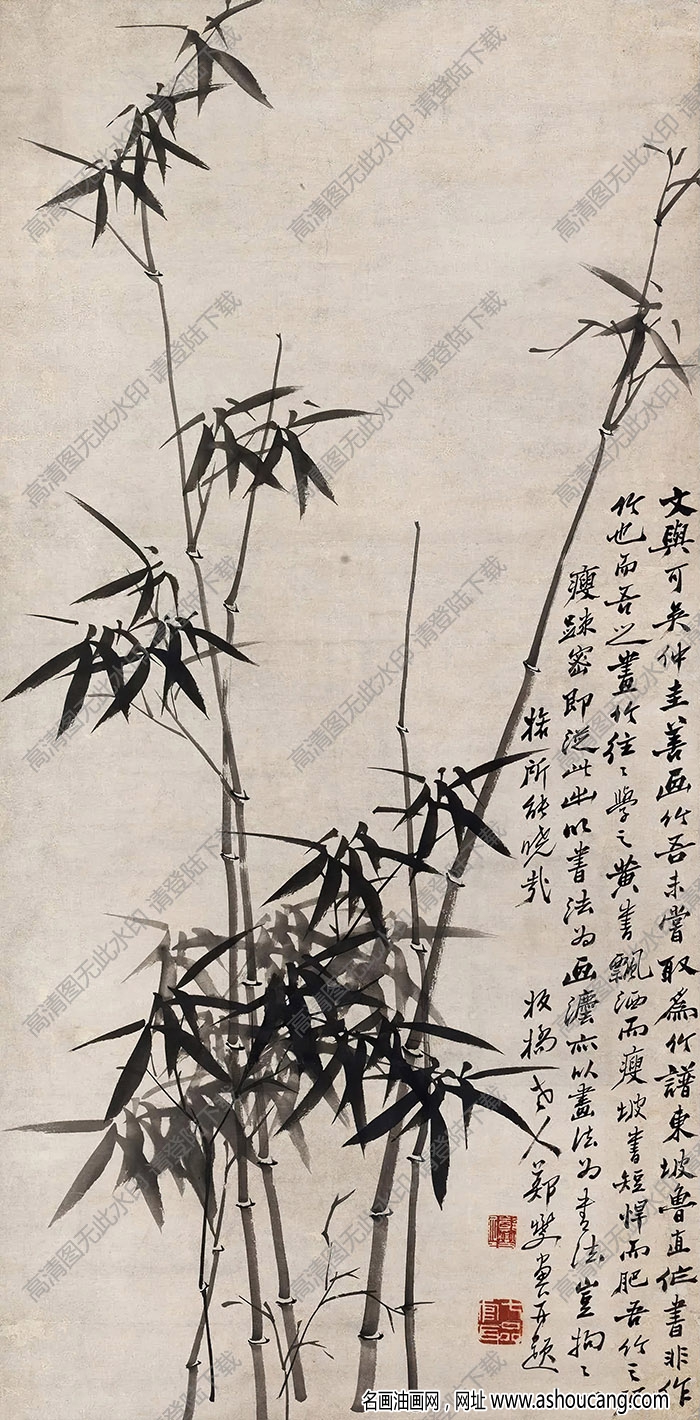 文與可吳仲圭善画竹吾未嘗取為竹譜東坡魯直作書非作
竹也而吾之畫竹往〻學之黄書飄洒而瘦坡書短悍而肥吾竹之
瘦踈密即從此出以書法為画法亦以畫法为書法豈拘〻
所能曉哉 板橋老人鄭燮畫并題
七品官耳
高清图无此水印 请登陆下载
名画油画网，网址 www.ashoucang.com